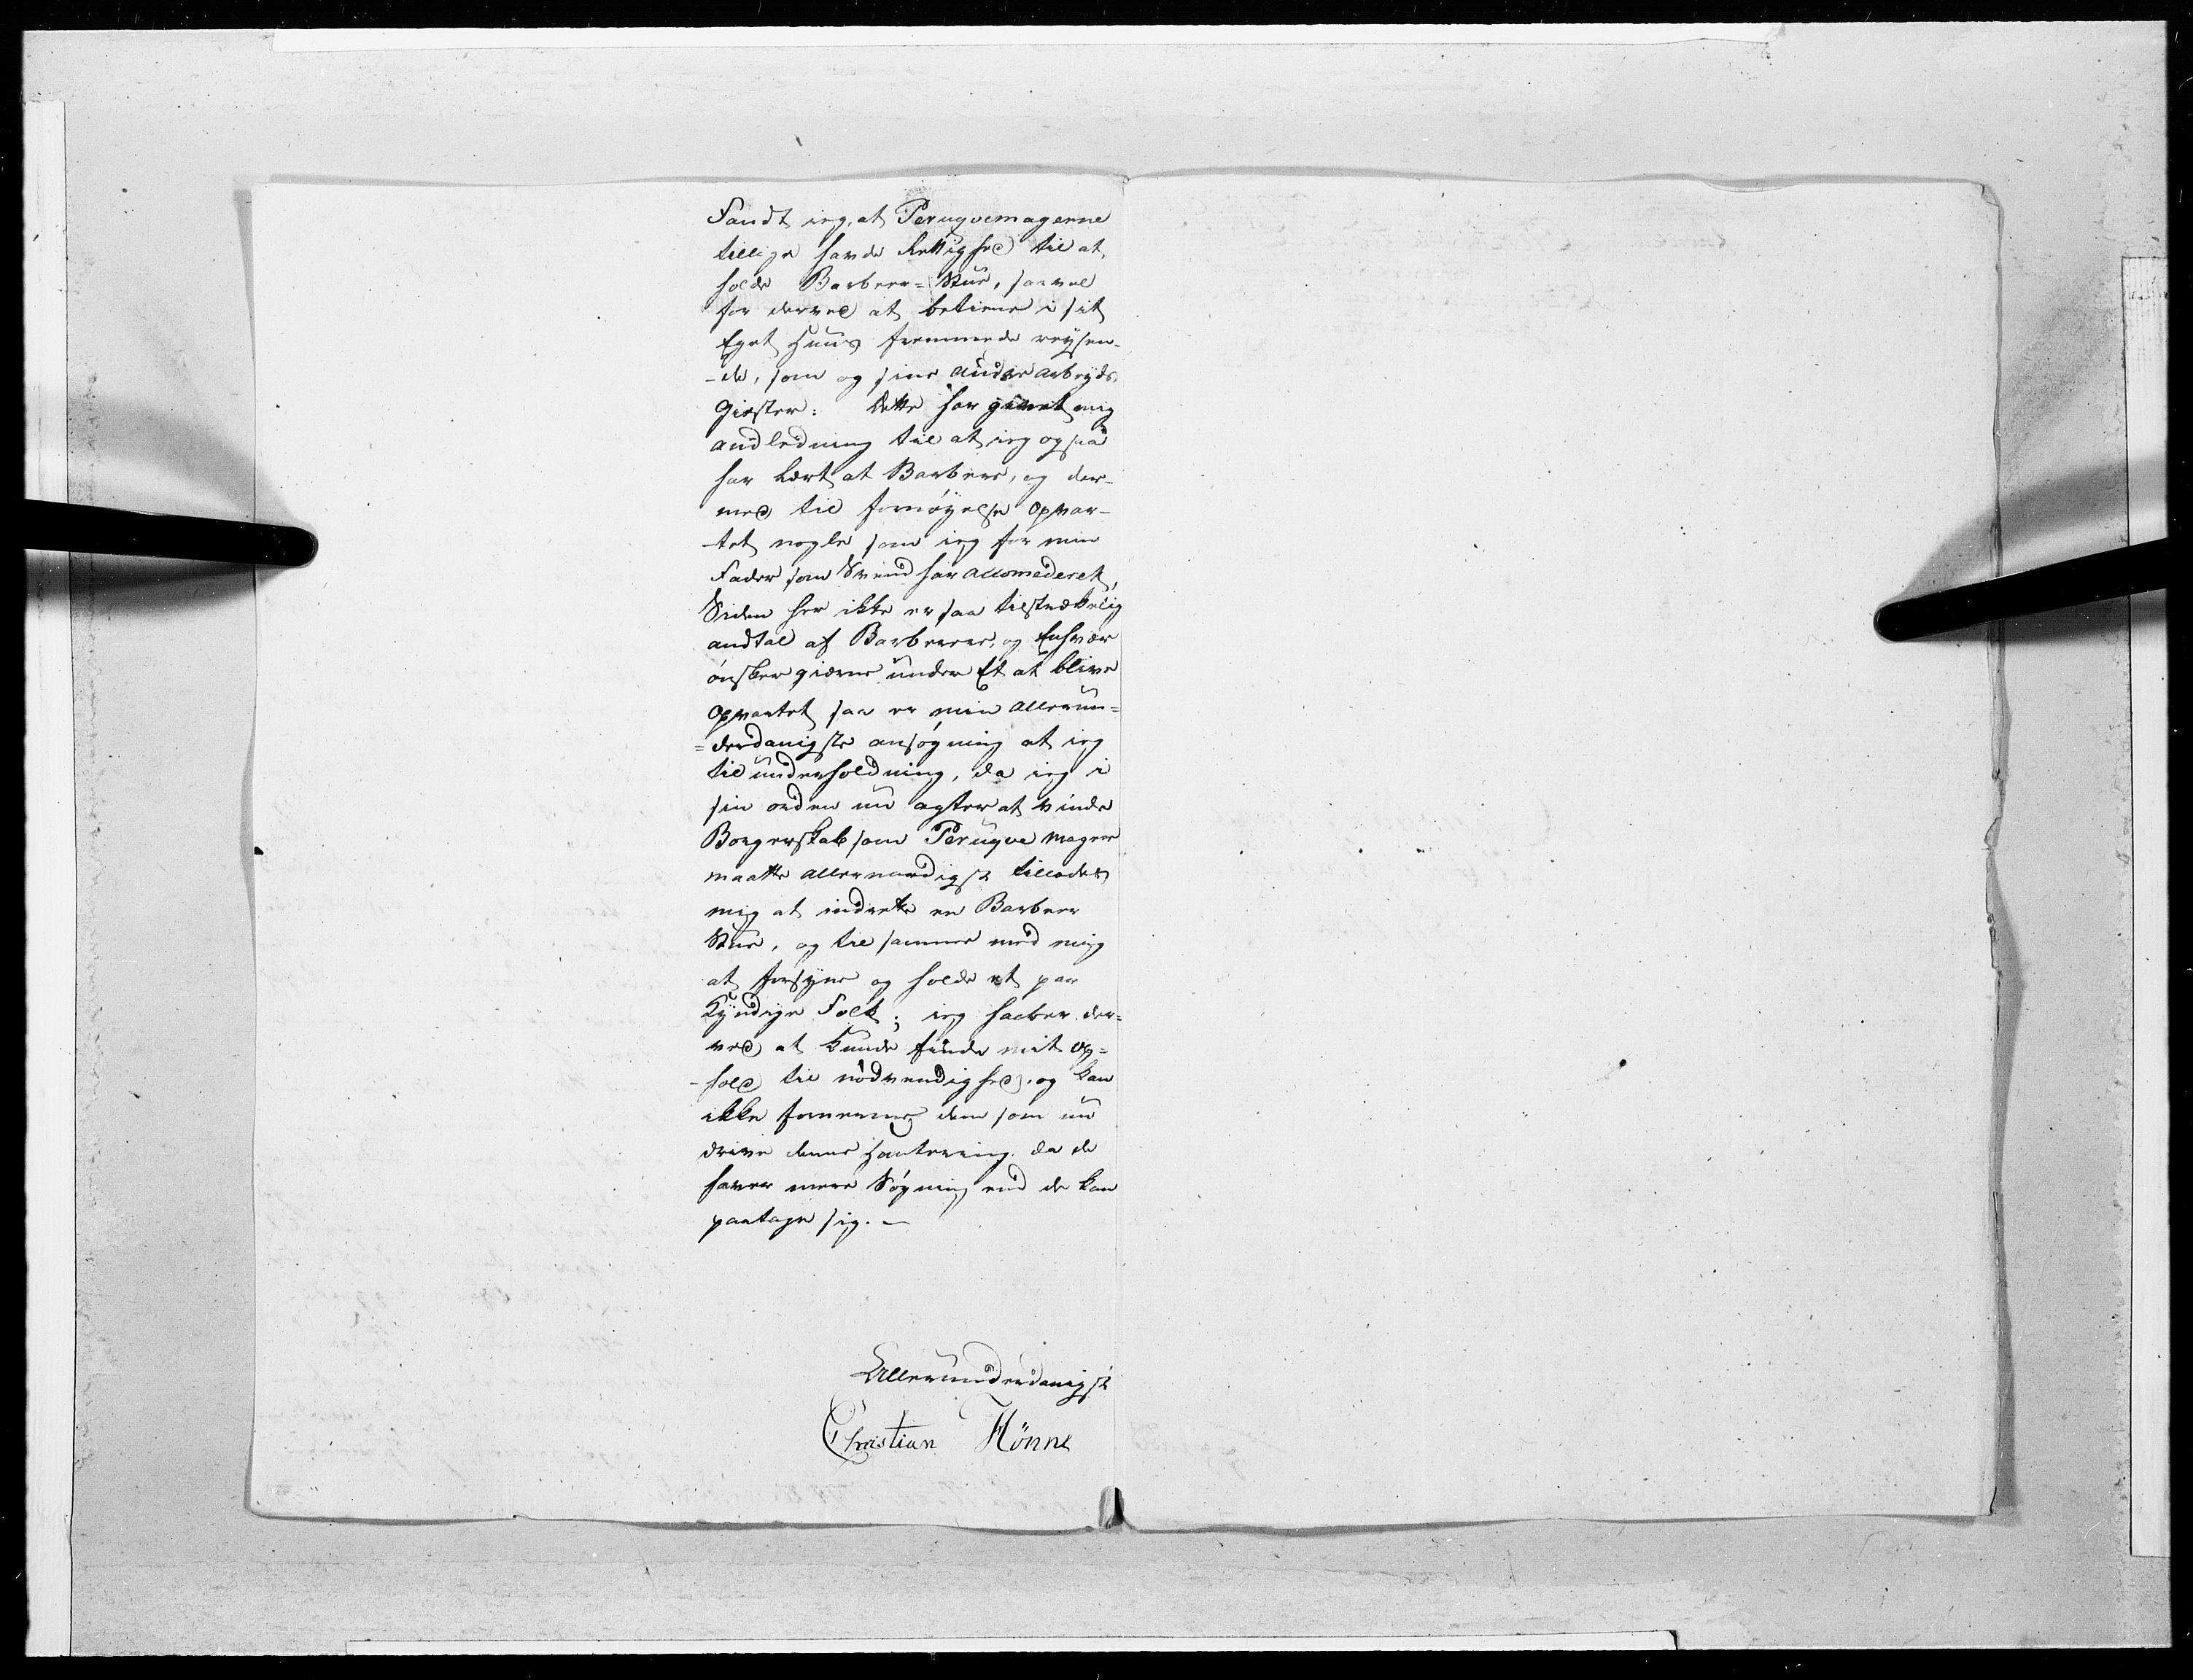 Fandt ieg, at Peruqvemagerne
tillige havde Rettighed til at
holde Barbeer=Stue, saavel
for derved at betiene i sit
Eget Huus fremmede reysen-
-de, som og sine andre arbeyds
Giester: dette har givet mig
andledning til at ieg ogsaa
har lært at Barbere, og der-
med til fornöyelse opvar-
-tet nogle som ieg for min
Fader som Svend har accomederet,
Siden her ikke er saa tilstrækelig
andtal af Barberer, og Enhvær
önsker gierne under Et at blive
opvartet saa er min allerun=
=derdanigste ansögning at ieg
til underholdning, da ieg i
sin orden nu agter at vinde
Borgerskab som Peruqve mager
maatte allernaadigst tillades
mig at indrette en Barbeer
Stue, og til samme med mig
at forsyne og holde et par
Kyndige Folk; ieg haaber der=
ved at kunde finde mit op=
-hold til nödvendighed, og kan
ikke fornerme dem som nu
drive denne Hantering. da de
haver mere Sögning end de kan
paatage sig. -
Allerunderdanigst
Christian Hönne